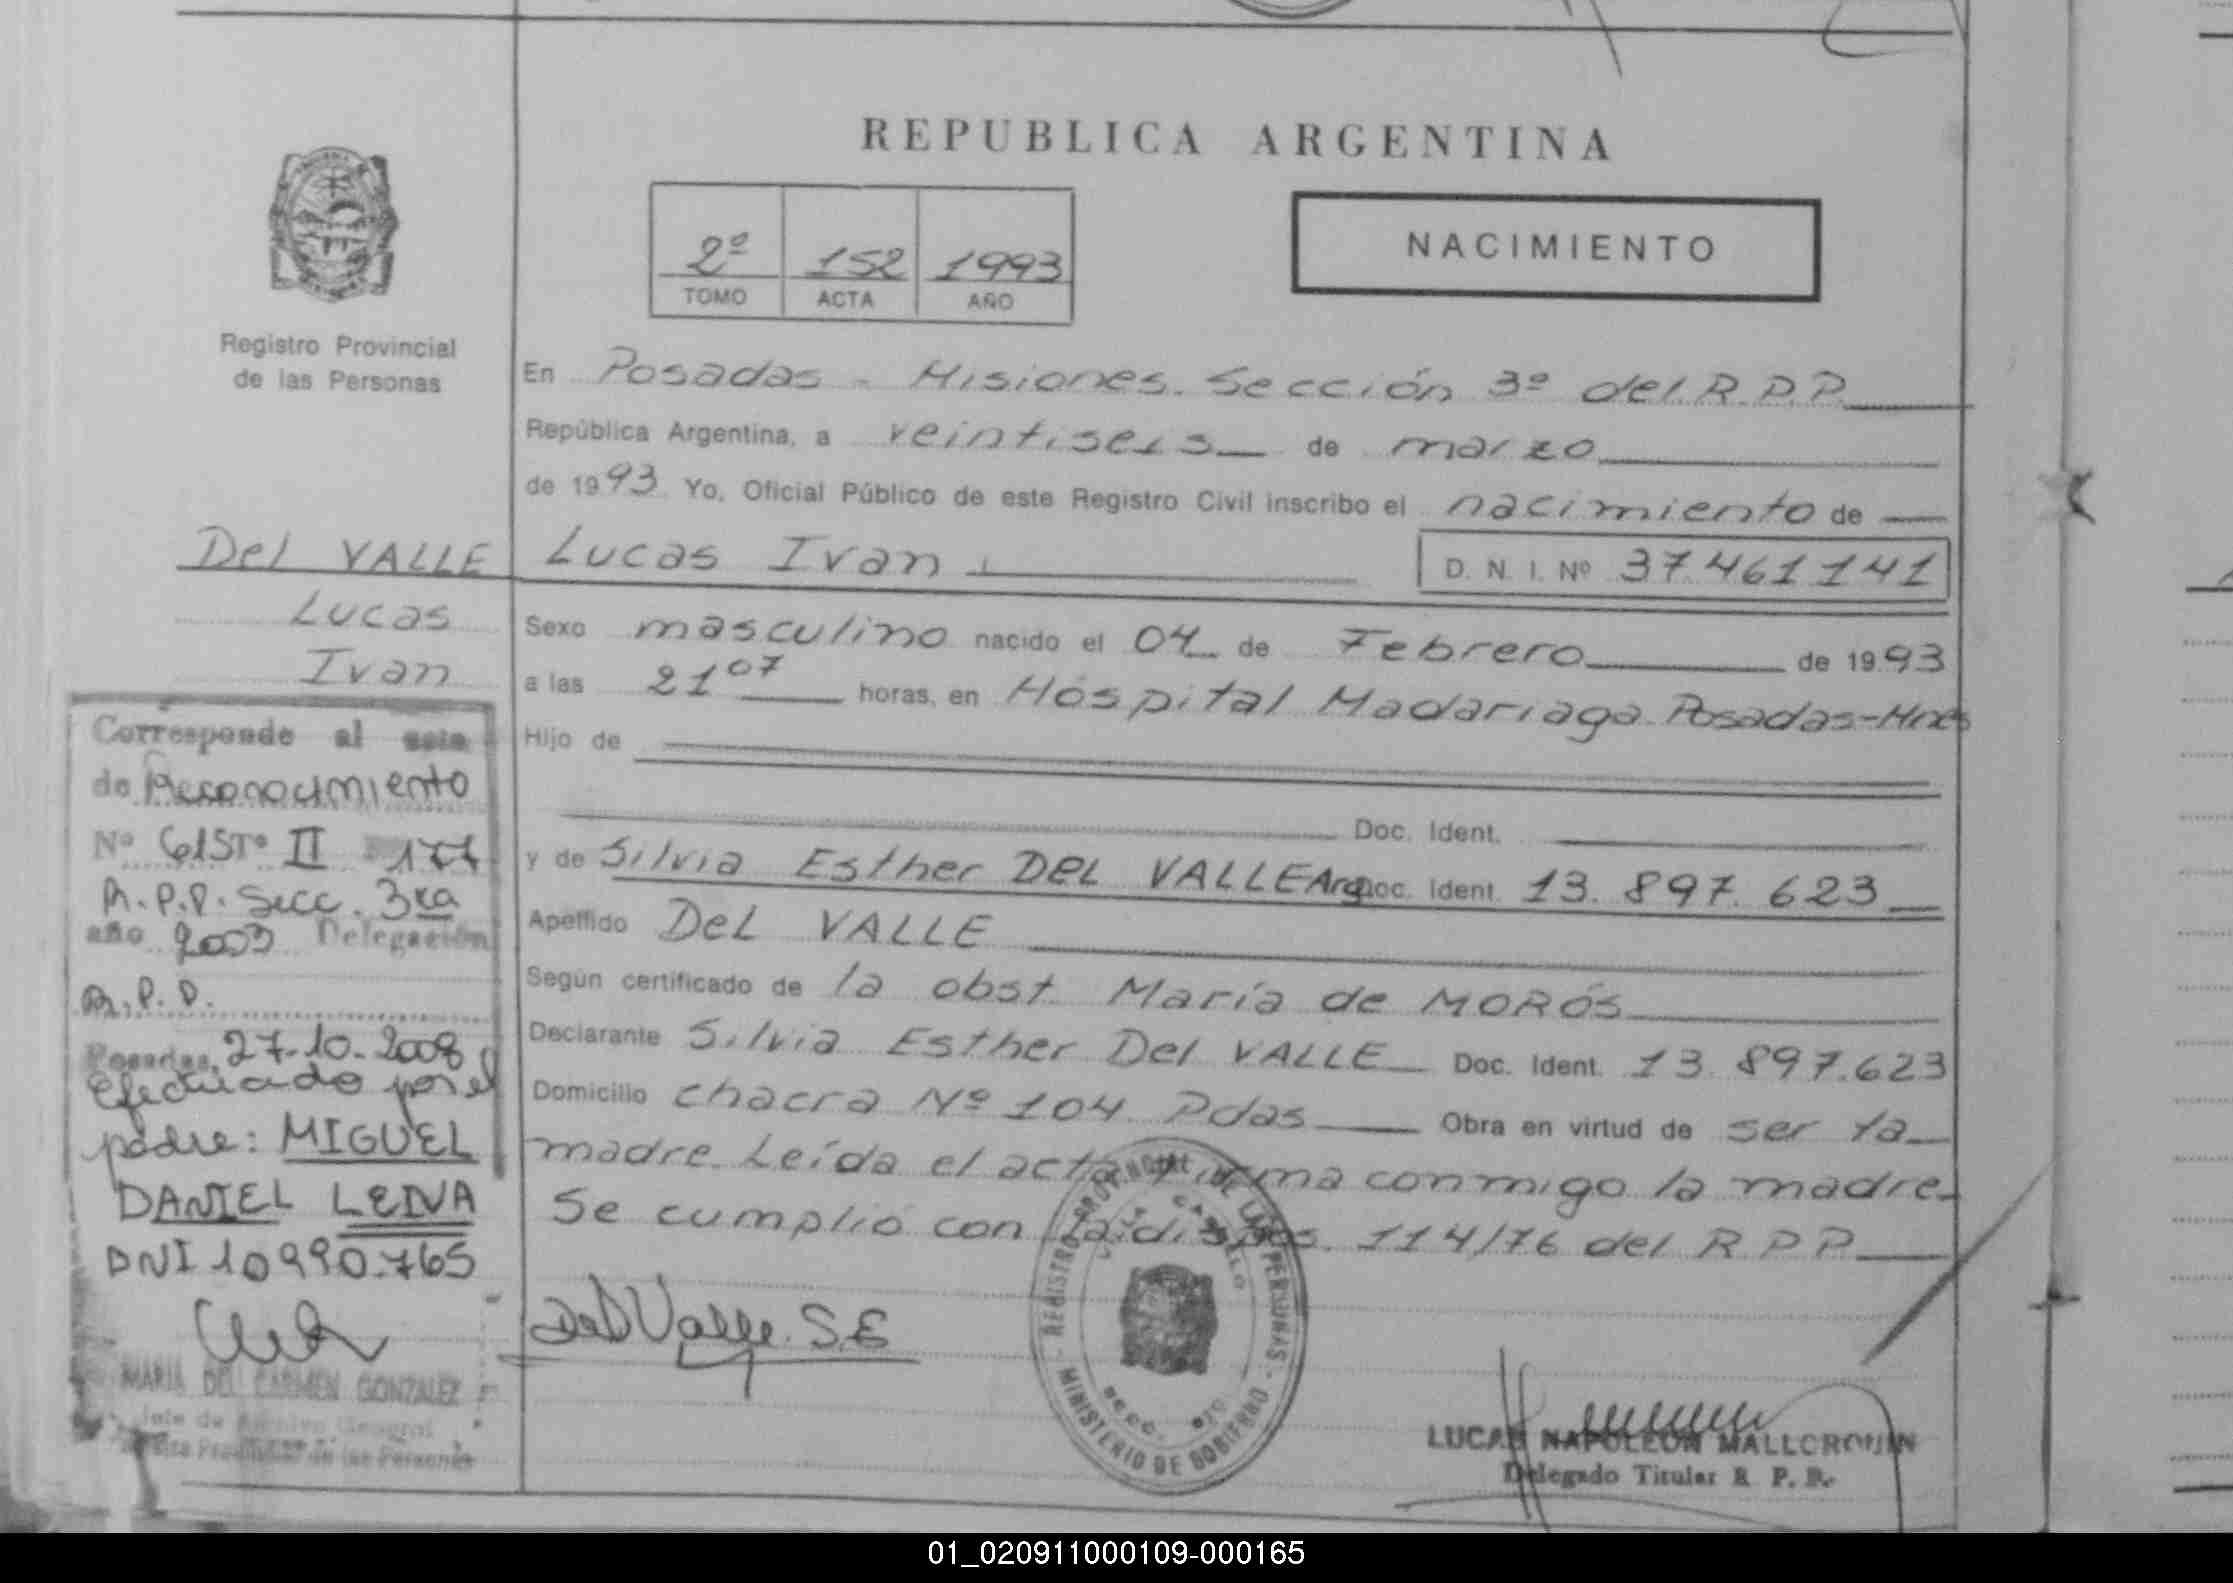 REPUBLICA ARGENTINA
2º 152 1993
TOMO ACTA AÑO
NACIMIENTO
Registro Provincial
de las Personas
En Posadas - Misiones. Sección 3º del R.P.P.
República Argentina, a veintiseis de marzo
de 1993 Yo, Oficial Público de este Registro Civil inscribo el nacimiento de
Del VALLE Lucas Ivan
D. N. I. Nº 37.461141
Lucas
Ivan
Sexo masculino nacido el 04 de Febrero de 1993
a las 21 07 horas, en Hospital Madariaga Posadas-Mnes
Hijo de
Doc. Ident.
y de Silvia Esther DEL VALLE Arg Doc. Ident. 13.897.623
Apellido DEL VALLE
Según certificado de la obst. María de MORÓS
Declarante Silvia Esther Del VALLE Doc. Ident. 13.897.623
Domicilio chacra Nº 104. Pdas Obra en virtud de ser la
madre. Leída el acta firma conmigo la madre
Se cumplió con la dispos. 114/76 del R P P
Del Valle. S.E
REGISTRO PROVINCIAL DE LAS PERSONAS
MINISTERIO DE GOBIERNO
LUCAS NAPOLEON MALLORQUIN
Delegado Titular R. P. P.
Corresponde al acta
de Reconocimiento
Nº 615 Tº II
R.P.P. Secc. 3ra
año 2003 Delegación
R.P.P.
Posadas, 27-10-2008
Efectuado por el
padre: MIGUEL
DANIEL LEIVA
DNI 10990.765
MARIA DEL CARMEN GONZALEZ
Jefe de Archivo General
Registro Provincial de las Personas
01_020911000109-000165